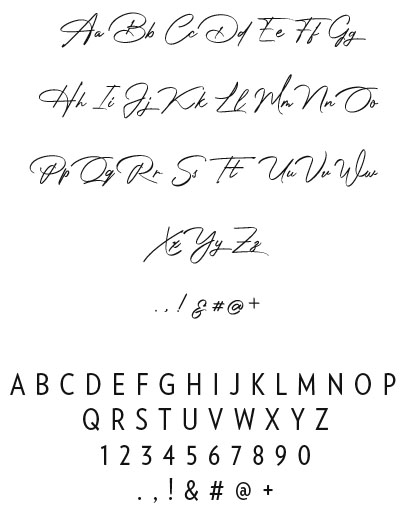 Aa Bb Cc Dd Ee Ff Gg
Hh Ii Jj Kk Ll Mm Nn Oo
Pp Qq Rr Ss Tt Uu Vv Ww
Xx Yy Zz
. , ! & # @ +
A B C D E F G H I J K L M N O P
Q R S T U V W X Y Z
1 2 3 4 5 6 7 8 9 0
. , ! & # @ +